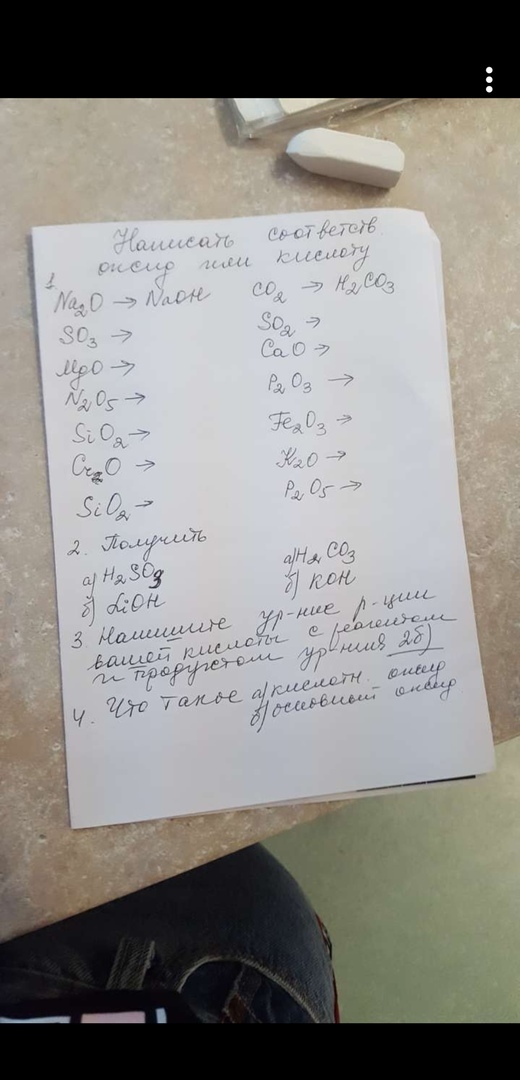 Написать соответств.
оксид или кислоту
1.
Na₂O → NaOH
CO₂ → H₂CO₃
SO₃ →
SO₂ →
MgO →
CaO →
N₂O₅ →
P₂O₃ →
SiO₂ →
Fe₂O₃ →
Cr₂O →
K₂O →
SiO₂ →
P₂O₅ →
2. Получить
а) H₂SO₃
а) H₂CO₃
б) LiOH
б) KOH
3. Напишите ур-ние р-ции
вашей кислоты с реагентом
и продуктом ур-ния 2б)
4. Что такое а) кислотн. оксид
б) основный оксид